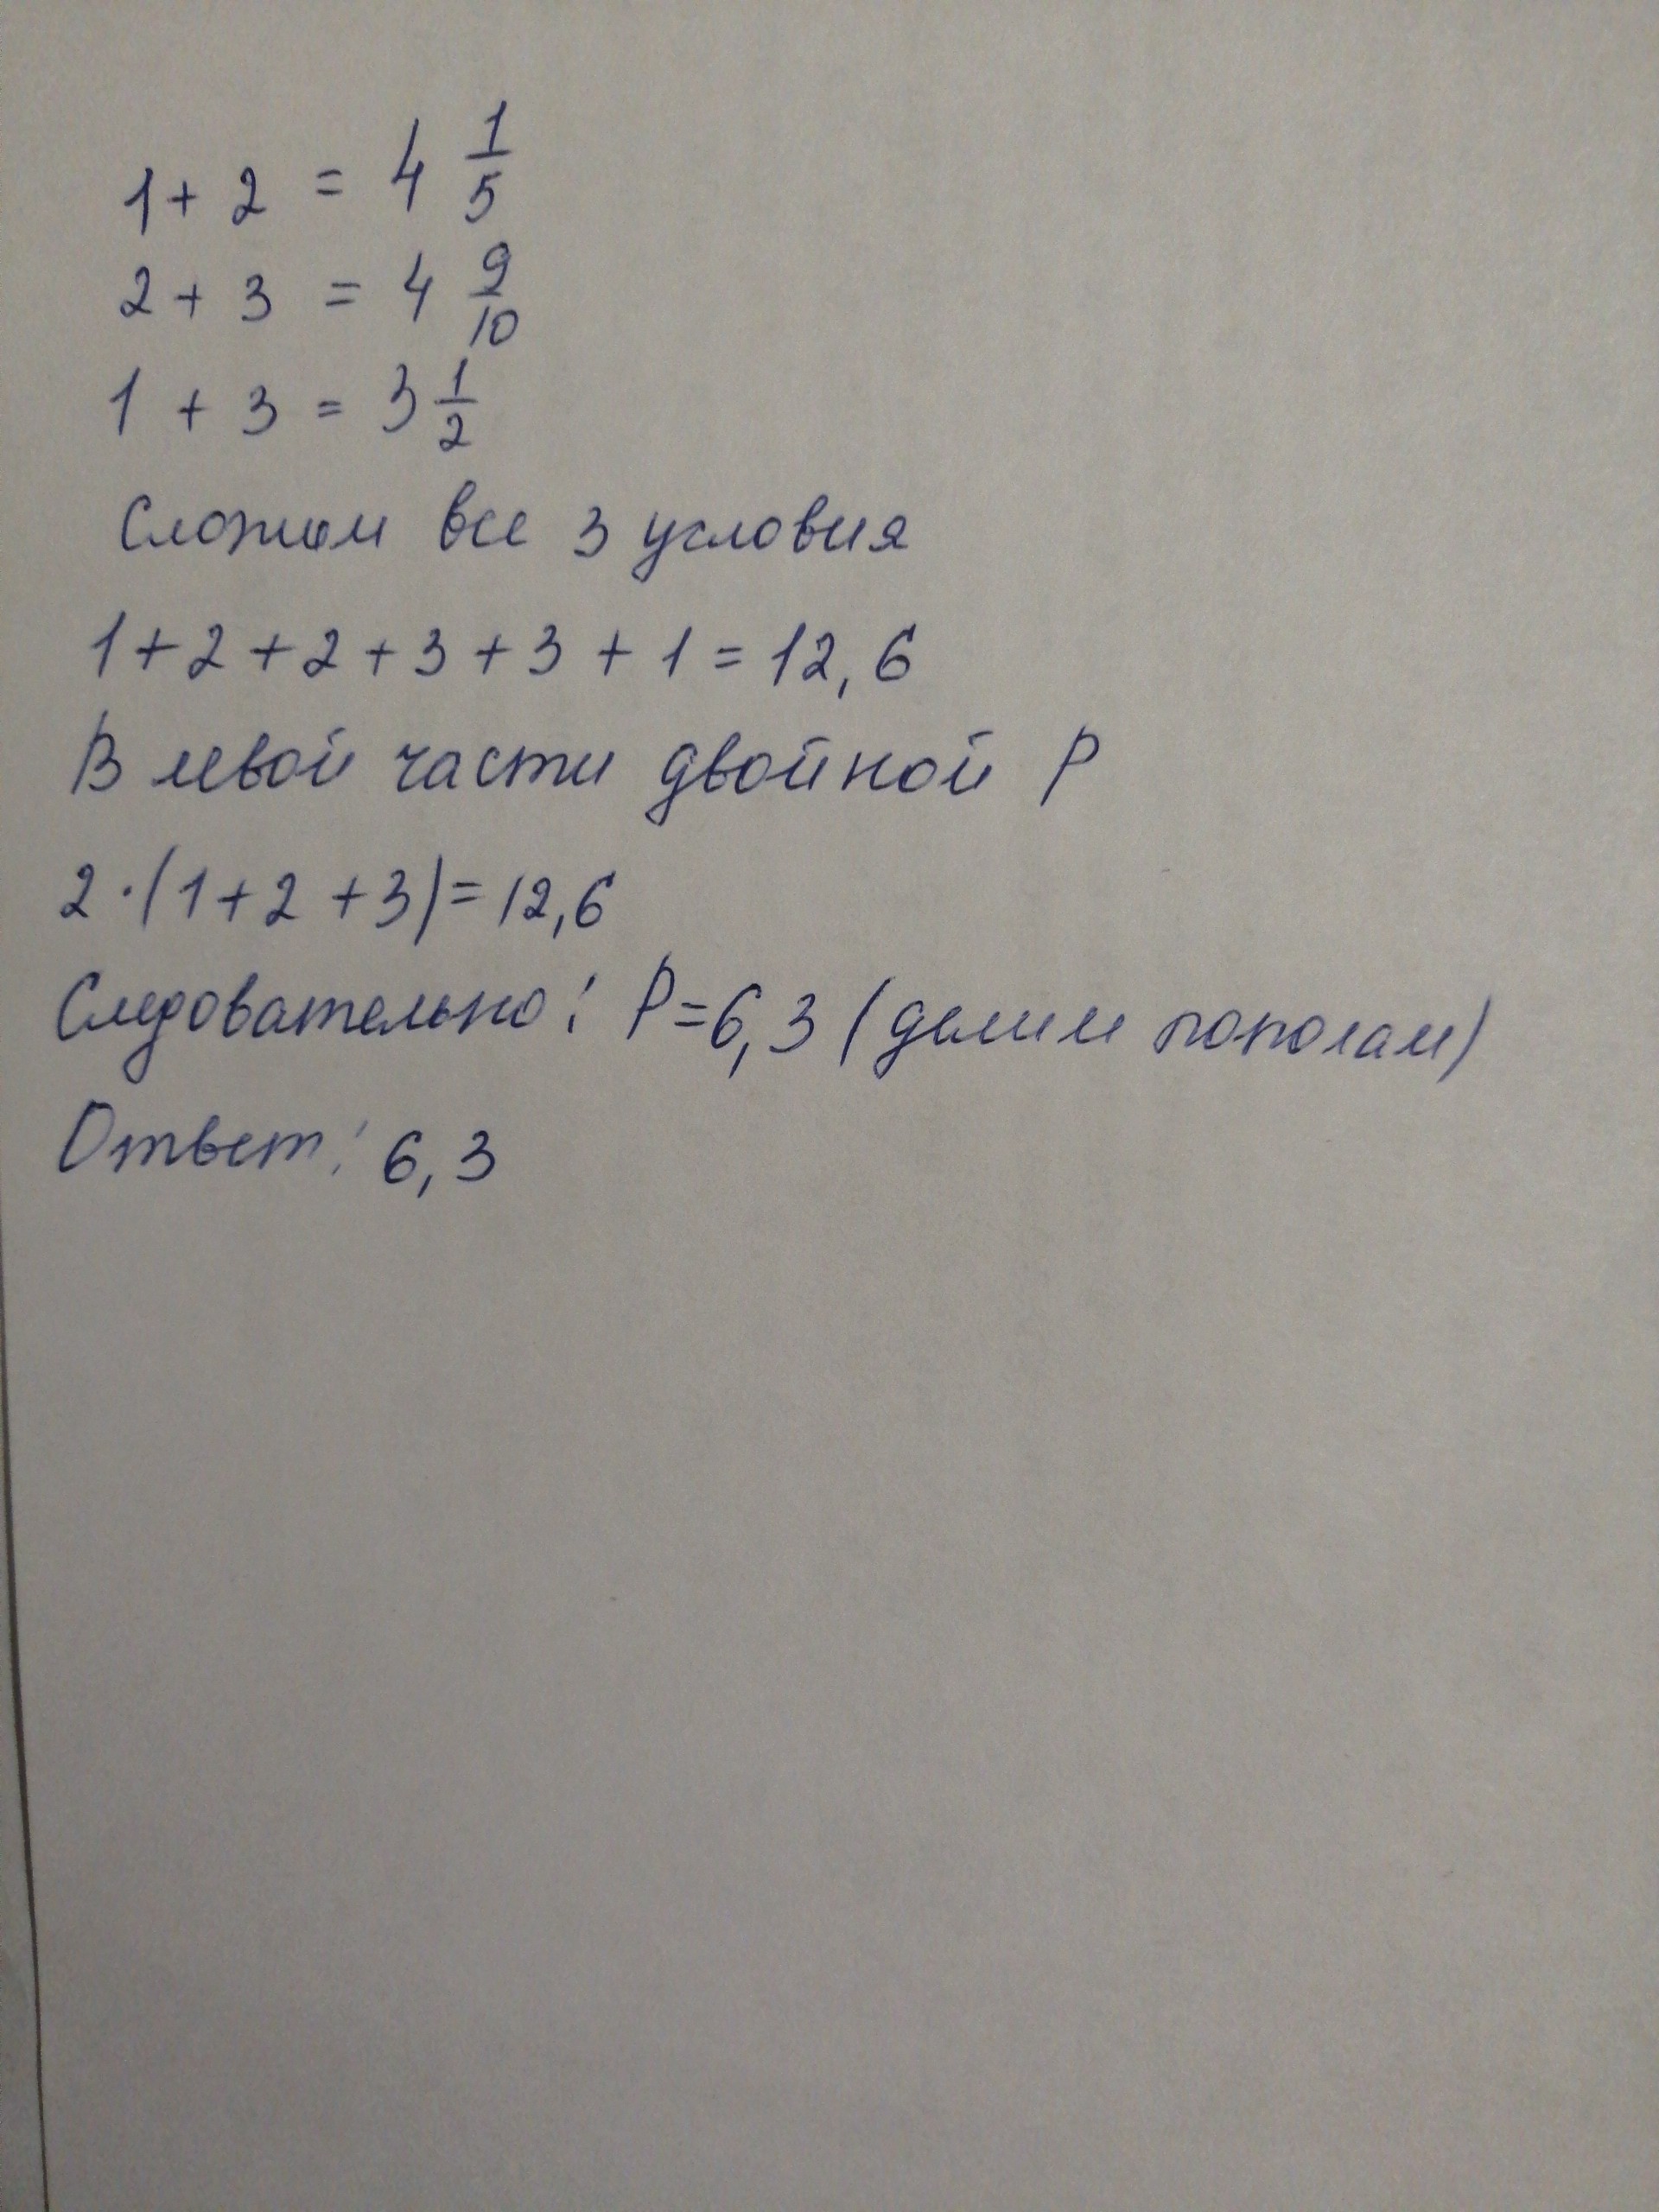 1 + 2 = 4 1/5
2 + 3 = 4 9/10
1 + 3 = 3 1/2
Сложим все 3 условия
1 + 2 + 2 + 3 + 3 + 1 = 12,6
В левой части двойной P
2 · (1 + 2 + 3) = 12,6
Следовательно: P = 6,3 (делим пополам)
Ответ: 6,3